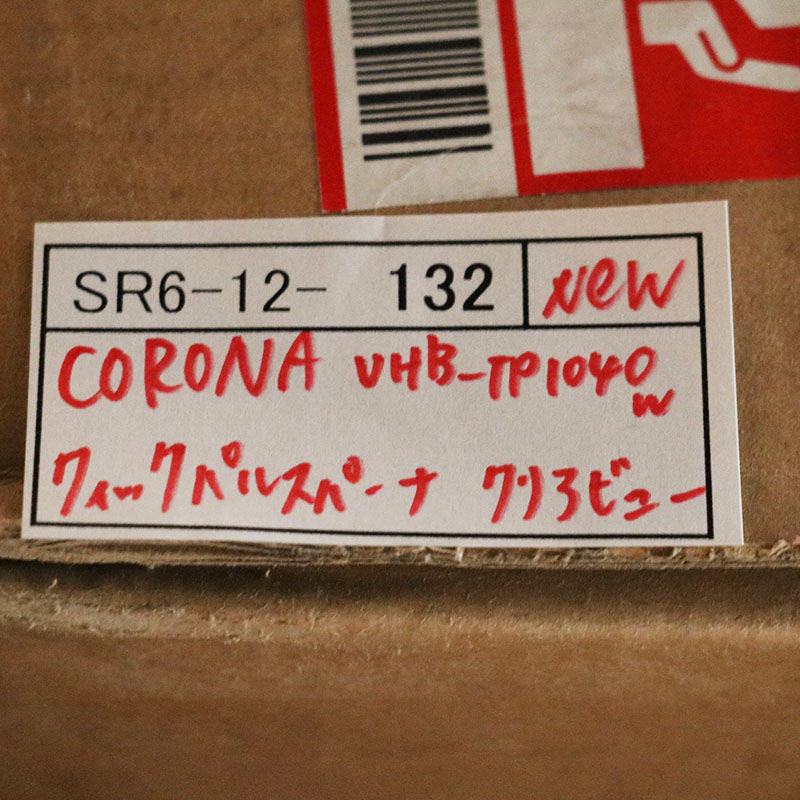 SR6-12- 132 NeW
CORONA VHB-TP1040W
クィックパルスバーナ クリアビュー